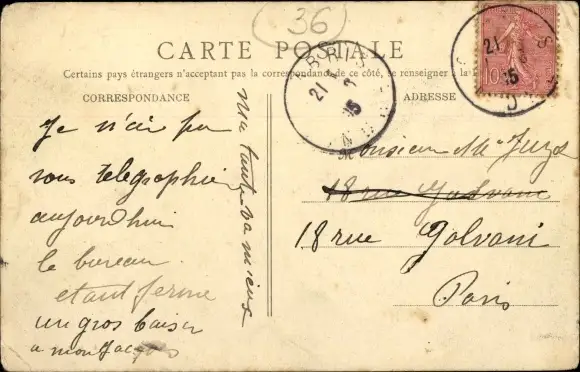 36
CARTE POSTALE
Certains pays étrangers n'acceptant pas la correspondance de ce côté, se renseigner à la
CORRESPONDANCE
ADRESSE
Je n'ai pu
vous telegraphier
aujourd'hui
le bureau
etant fermé
un gros baiser
a mon
ma tante va mieux
21
15
21
15
10
Monsieur
18 rue Galvani
18 rue Galvani
Paris